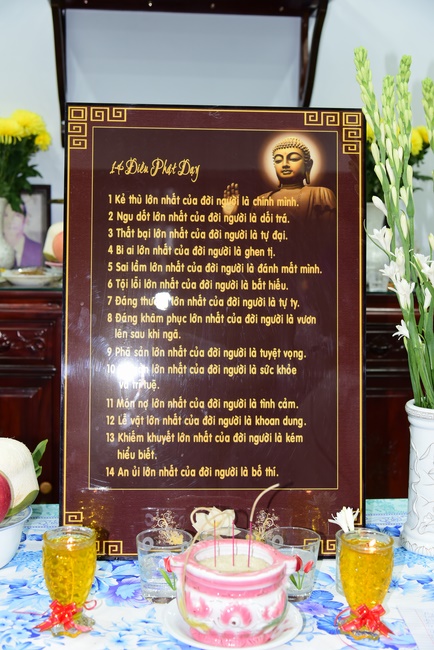 14 Điều Phật Dạy
1 Kẻ thù lớn nhất của đời người là chính mình.
2 Ngu dốt lớn nhất của đời người là dối trá.
3 Thất bại lớn nhất của đời người là tự đại.
4 Bi ai lớn nhất của đời người là ghen tị.
5 Sai lầm lớn nhất của đời người là đánh mất mình.
6 Tội lỗi lớn nhất của đời người là bất hiếu.
7 Đáng lớn nhất của đời người là tự ty.
8 Đáng khâm phục lớn nhất của đời người là vươn
lên sau khi ngã.
9 Phá sản lớn nhất của đời người là tuyệt vọng.
10 lớn nhất của đời người là sức khỏe
và trí tuệ.
11 Món nợ lớn nhất của đời người là tình cảm.
12 Lễ vật lớn nhất của đời người là khoan dung.
13 Khiếm khuyết lớn nhất của đời người là kém
hiểu biết.
14 An ủi lớn nhất của đời người là bố thí.